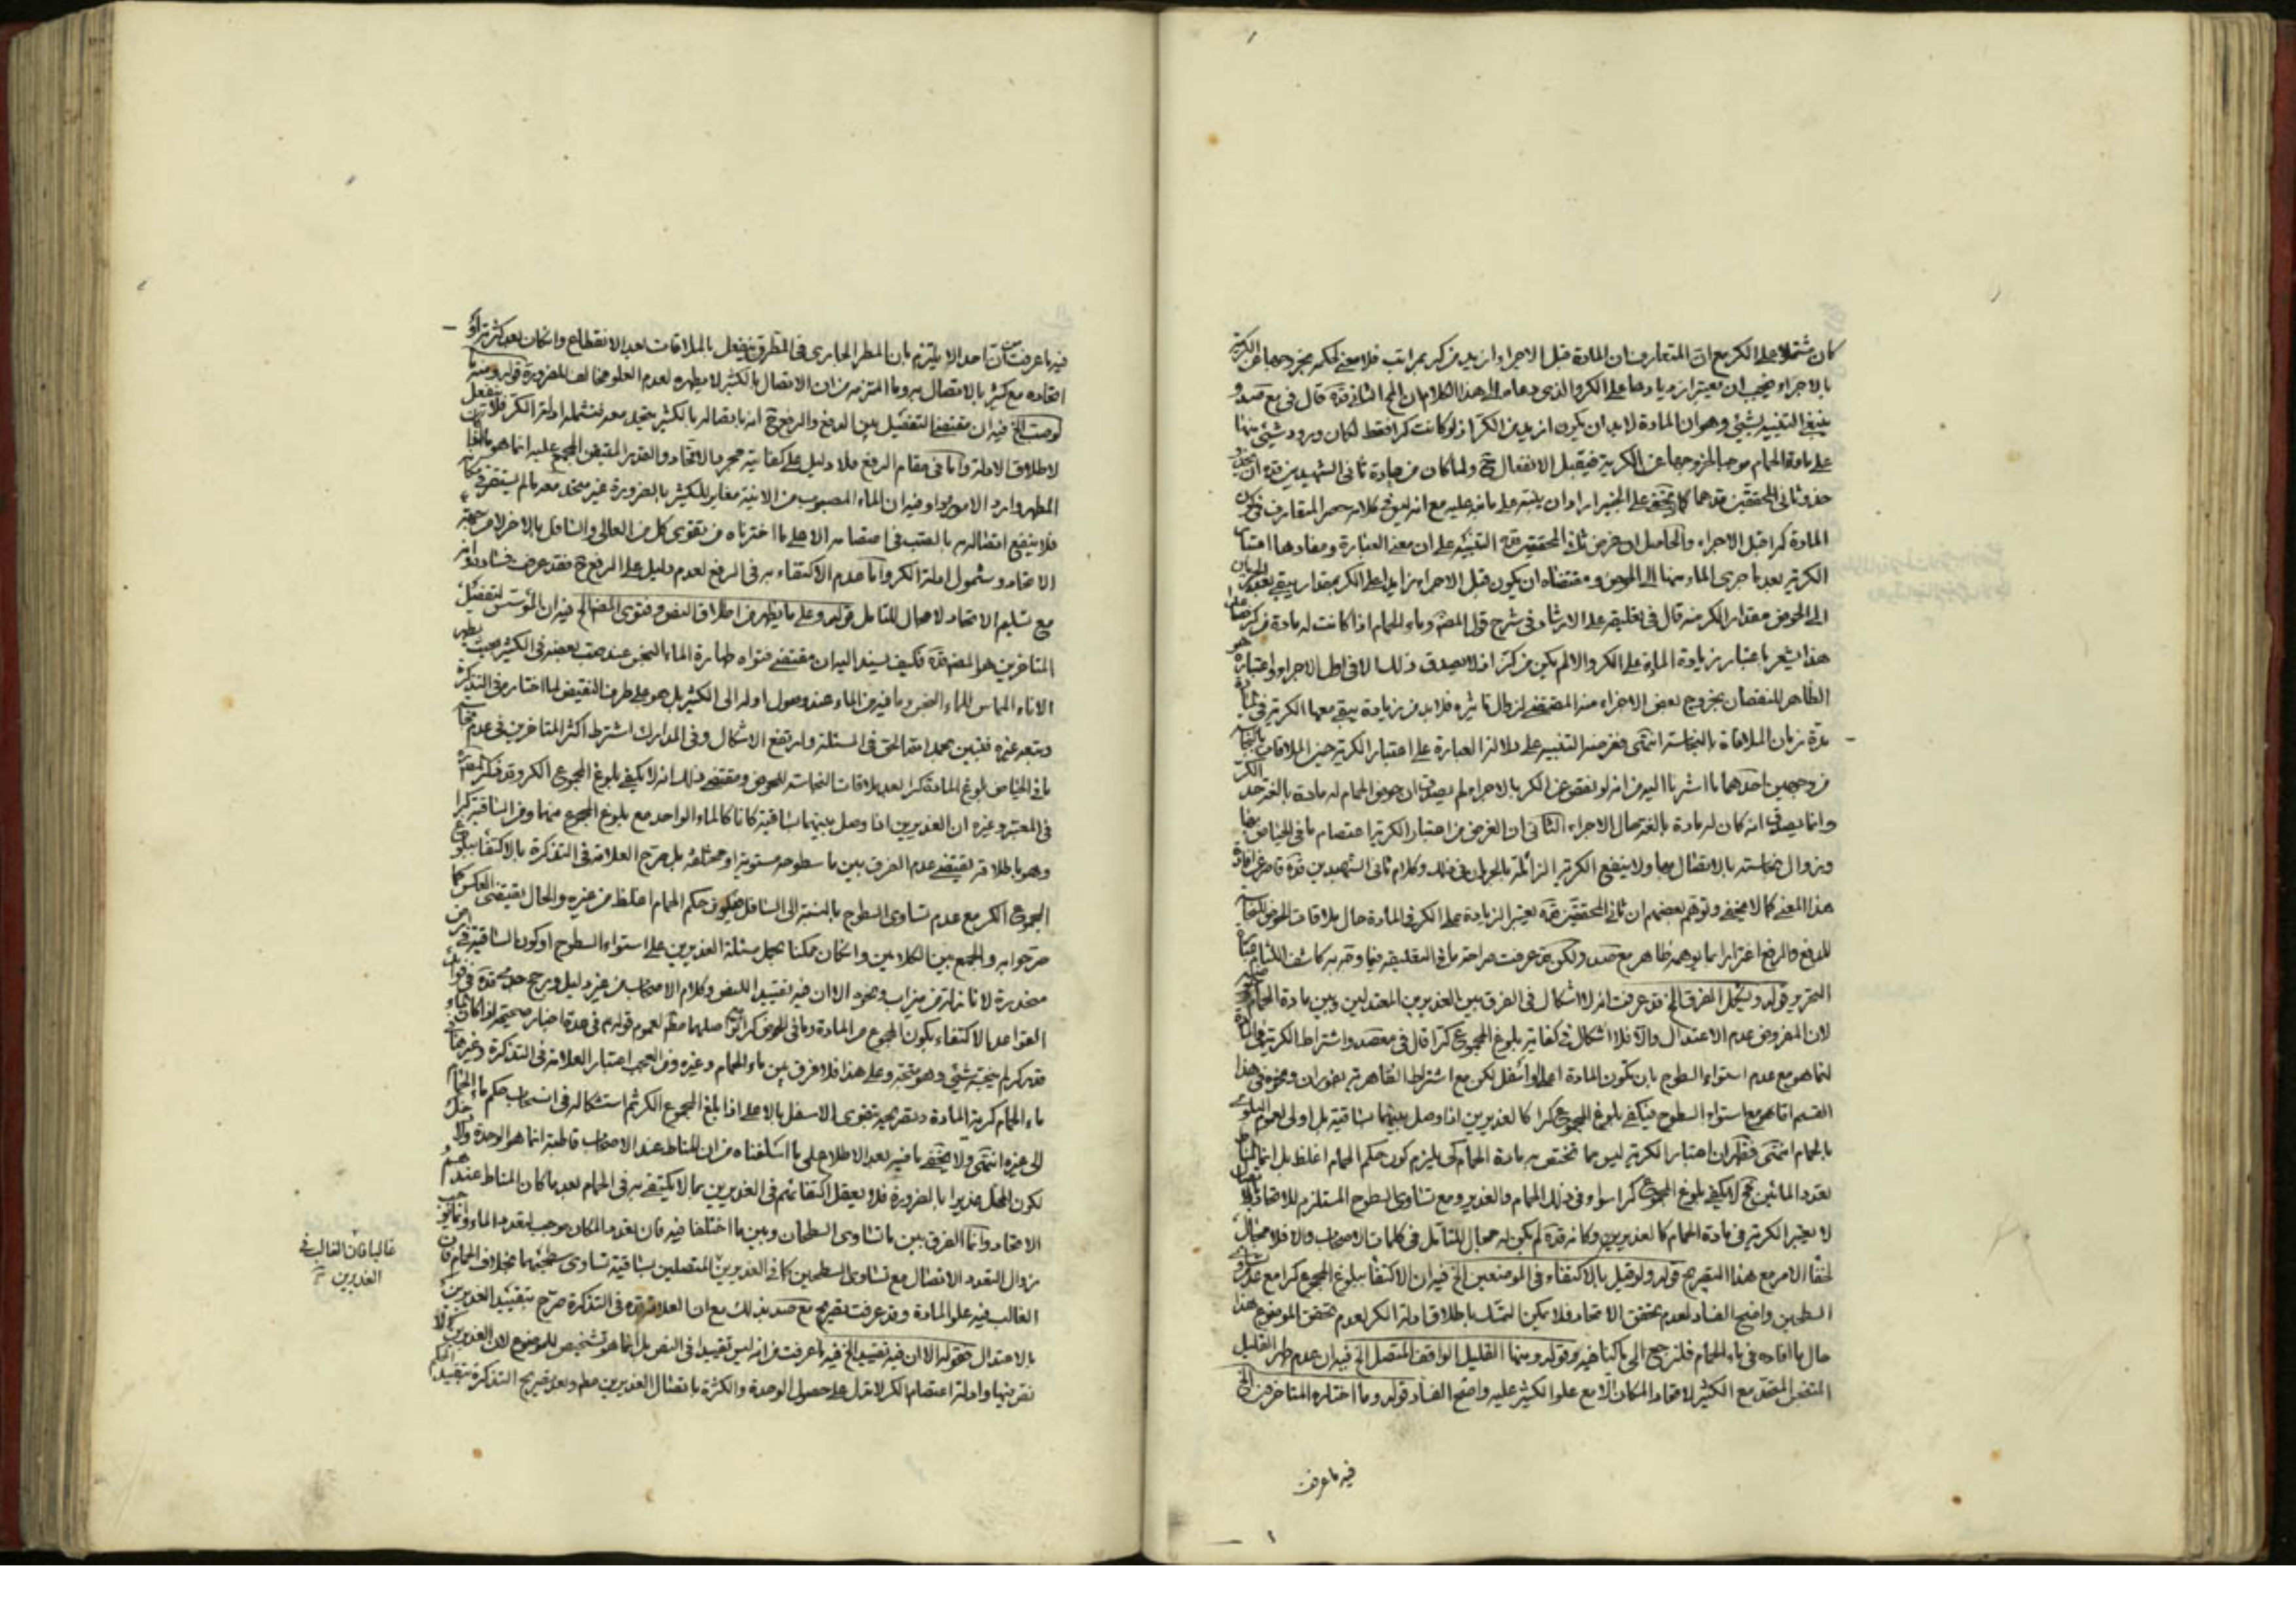 كان مشتملا على الكر مع ان المتعارف ان المادة قبل الاجراء ازيد من كر بمراتب فلا معنى لحكم بخروجها عن الكرية
بالاجراء فيجب ان يعتبر ازديادها على الكر والذى دعاه الى هذا الكلام ان المحقق الثانى قده قال فى مع صد و
ينبغى التنبيه لشئ وهو ان المادة لابد ان يكون ازيد من الكر اذ لو كانت كرا فقط لكان ورود شئ منها
على ماء الحمام موجبا لخروجها عن الكرية فيقبل الانفعال ح ولما كان من عادة ثانى الشهيدين قده ان
حذو ثانى المحققين قدهما كما لا يخفى على الخبير اراد ان ينبه على ما نبه عليه مع انه
المادة كرا قبل الاجراء والحاصل ان غرض ثانى المحققين قده التنبيه على ان معنى العبارة ومفادها اعتبار
الكرية بعد ما جرى الماء منها الى الحوض ومقتضاه ان يكون قبل الاجراء زايدا على الكر بمقدار يبقى بعد
الى الحوض مقدار الكر منه قال فى تعليقه على الارشاد فى شرح قول المص وماء الحمام اذا كانت له مادة من كر
هذا يشعر باعتبار زيادة المادة على الكر والا لم يكن من كر اذ لا يصدق ذلك الا فى اول الاجراء واعتباره هو
الظاهر للنقصان بخروج بعض الاجزاء منه المقتضى لزوال تاثيره فلابد من زيادة يبقى معها الكرية فى
مدة زمان الملاقاة بالنجاسة انتهى وغرضه التنبيه على دلالة العبارة على اعتبار الكرية حين الملاقات بالنجاسة
من وجهين احدهما ما اشرنا اليه من انه لو نقص عن الكر بالاجراء لم يصدق ان حوض الحمام له مادة بالغة حد الكر
وانما يصدق انه كان له مادة بالغة حال الاجراء الثانى ان الغرض من اعتبار الكرية اعتصام ما فى الحياض بها
وزوال نجاسته بالاتصال بها ولا ينفع الكرية الزائلة بالجريان فى ذلك وكلام ثانى الشهيدين قده قاصر عن افادة
هذا المعنى كما لا يخفى وتوهم بعضهم ان ثانى المحققين قده يعتبر الزيادة على الكر فى المادة حال ملاقات الحوض للنجاسة
للدفع والرفع اغترارا بما يوهمه ظاهر مع صد ولكن قد عرفت صراحة ما فى التعليقة فيما وقربه كاشف اللثام
التحرير قوله ويشكل الفرق الخ قد عرفت انه لا اشكال فى الفرق بين الغديرين المعتدلين وبين مادة الحمام
لان المفروض عدم الاعتدال والا فلا اشكال فى كفاية بلوغ المجموع كرا قال فى مع صد واشتراط الكرية فى المادة
انما هو مع عدم استواء السطوح بان تكون المادة اعلى او اسفل لكن مع اشتراط القاهرية بفوران ونحوه فى هذا
القسم اما مع استواء السطوح فيكفى بلوغ المجموع كرا كالغديرين اذا وصل بينهما بساقية بل اولى لعموم البلوى
بالحمام انتهى فظهر ان اعتبار الكرية ليس مما تختص به مادة الحمام كى يلزم كون حكم الحمام اغلظ بل انما المناط
تعدد المائين فح لا يكفى بلوغ المجموع كرا سواء فى ذلك الحمام والغدير ومع تساوى السطوح المستلزم للاتحاد
لا يعتبر الكرية فى مادة الحمام كالغديرين وكانه قده لم يكن له مجال للتأمل فى كلمات الاصحاب والا فلا مجال
لخفاء الامر مع هذا التصريح قوله ولو قيل بالاكتفاء فى الموضعين الخ فيه ان الاكتفا ببلوغ المجموع كرا مع عدم تساوى
السطحين واضح الفساد لعدم تحقق الاتحاد فلا يمكن التمسك باطلاق ادلة الكر لعدم تحقق الموضوع هذا
حال ما افاده فى ماء الحمام فلنرجع الى ما كنا فيه قوله ومنها القليل الواقف المتصل الخ فيه ان عدم طهر القليل
المتنجس المتحد مع الكثير لاتحاد المكان الا مع علو الكثير عليه واضح الفساد قوله وما اختاره المتاخرون الخ
فيه ما عرفت
فيه ما عرفت من ان احدا لا يلتزم بان المطر الجارى فى الطرق ينفعل بالملاقات بعد الانقطاع وان كان بعد كثرته او
اتحاده مع كثير بالاتصال به وما التزمه من ان الاتصال بالكثير لا يطهره لعدم العلو مخالف للضرورة قوله ومنه ما
لو صب الخ فيه ان مقتضى التفصيل بين الدفع والرفع ح انه باتصاله بالكثير يتحد معه فتشمله ادلة الكر فلا ينفعل
لاطلاق الادلة واما فى مقام الرفع فلا دليل على كفاية مجرد الاتحاد والقدر المتيقن المجمع عليه انما هو
المطهر واردا لا مورودا وفيه ان الماء المصبوب من الانية مغاير للكثير بالضرورة غير متحد معه ما لم يستقر فى مكانه
فلا ينفع اتصاله به بالصب فى اعتصامه الا على ما اخترناه من تقوى كل من العالى والسافل بالاخر لا من جهة
الاتحاد وشمول ادلة الكر واما عدم الاكتفاء به فى الرفع لعدم دليل على الرفع ح فقد عرفت فساده وانه
مع تسليم الاتحاد لا مجال للتامل قوله وعلى ما يظهر من اطلاق النص وفتوى المص الخ فيه ان المؤسس لتفصيل
المتاخرين هو المص قده فكيف يسند اليه ان مقتضى فتواه طهارة الماء النجس عند صب بعضه فى الكثير بحيث يطهر
الاناء المماس للماء النجس وما فيه من الماء عند وصول اوله الى الكثير بل هو على طرف النقيض لما اختاره فى التذكرة
وتبعه غيره فتبين بحمد الله الحق فى المسئلة وارتفع الاشكال وفى المدارك اشترط اكثر المتاخرين فى عدم نجاسة
ما فى الحياض بلوغ المادة كرا بعد ملاقات النجاسة للحوض ومقتضى ذلك انه لا يكفى بلوغ المجموع الكر وقد ذكر المص
فى المعتبر وغيره ان الغديرين اذا وصل بينهما بساقية كانا كالماء الواحد مع بلوغ المجموع منهما ومن الساقية كرا
وهو باطلاقه يقتضى عدم الفرق بين ما سطوحه مستوية او مختلفة بل صرح العلامة فى التذكرة بالاكتفا ببلوغ
المجموع الكر مع عدم تساوى السطوح بالنسبة الى السافل فيكون حكم الحمام اغلظ من غيره والحال يقتضى العكس كما
صرحوا به والجمع بين الكلامين وان كان ممكنا بحمل مسئلة الغديرين على استواء السطوح او كون الساقية فى ارض
منحدرة لا نازلة من ميزاب ونحوه الا ان فيه تقييد النص وكلام الاصحاب من غير دليل ورجح جدى قده فى فوائد
القواعد الاكتفاء بكون المجموع من المادة وما فى الحوض كرا مع تواصلهما مطلقا لعموم قولهم فى عدة اخبار صحيحة اذا كان الماء
قدر كر لم ينجسه شئ وهو متجه وعلى هذا فلا فرق بين ماء الحمام وغيره ومن العجب اعتبار العلامة فى التذكرة وغيرها فى
ماء الحمام كرية المادة وتصريحه بتقوى الاسفل بالاعلى اذا بلغ المجموع الكر ثم استشكاله فى انسحاب حكم ماء الحمام
الى غيره انتهى ولا يخفى ما فيه بعد الاطلاع على ما اسلفناه من ان المناط عند الاصحاب قاطبة انما هو الوحدة ولا دخل
لكون المحل غديرا بالضرورة فلا يعقل اكتفائهم فى الغديرين بما لا يكتفى به فى الحمام بعد ما كان المناط عندهم
الاتحاد وانما الفرق بين ما تساوى السطحان وبين ما اختلفا فيه فان تعدد المكان موجب لتعدد الماء وانما يوجب
زوال التعدد الاتصال مع تساوى السطحين كما فى الغديرين المتصلين بساقية تساوى سطحهما بخلاف الحمام فان
الغالب فيه علو المادة وقد عرفت تصريح مع صد بذلك مع ان العلامة قده فى التذكرة صرح بتقييد الغديرين
بالاعتدال فقوله الا ان فيه تقييد الخ فيه ما عرفت من انه ليس تقييدا فى النص بل انما هو تشخيص للموضوع لان الغديرين لا
نص فيهما وادلة اعتصام الكر لا تدل على حصول الوحدة والكثرة باتصال الغديرين مطلقا وبعد تصريح التذكرة بتقييد الحكم
غالبا فان الغالب فى
الغديرين